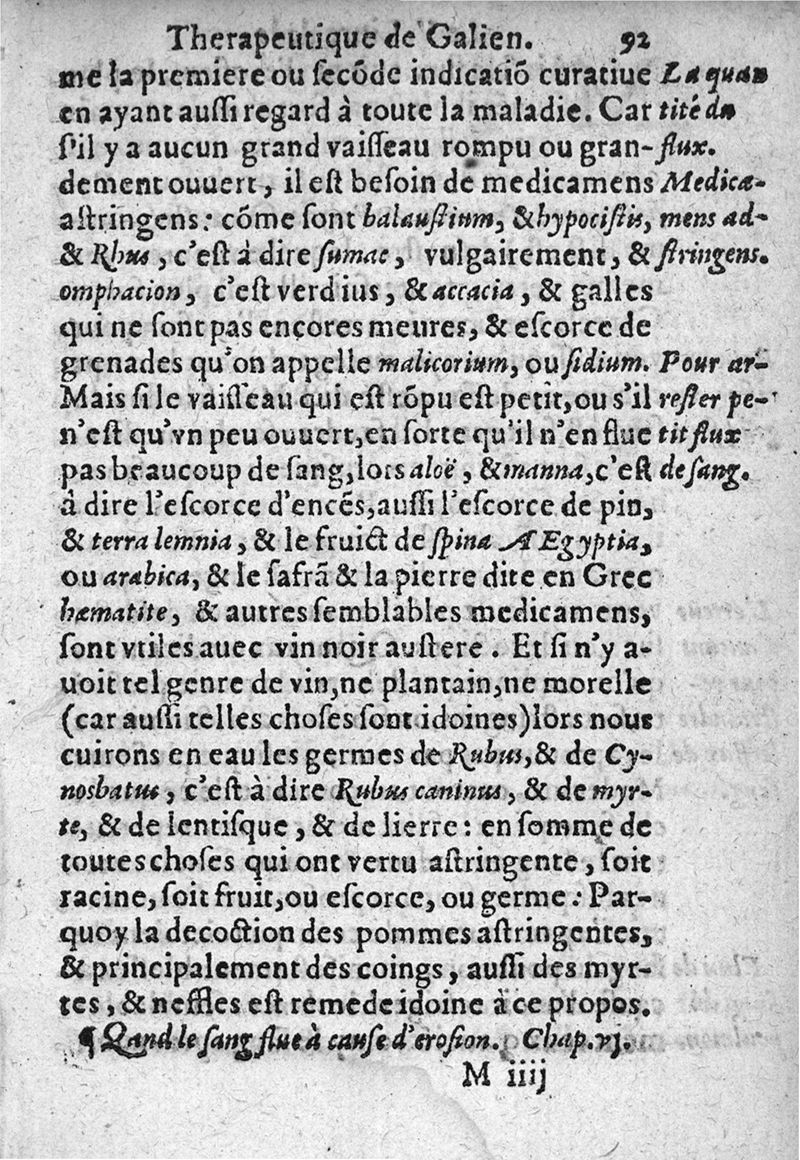 Therapeutique de Galien. 92
me la premiere ou secõde indicatiõ curatiue
en ayant aussi regard à toute la maladie. Car
s'il y a aucun grand vaisseau rompu ou gran-
dement ouuert, il est besoin de medicamens
astringens: cõme sont balaustium, & hypocistis,
& Rhus, c'est à dire sumac, vulgairement, &
omphacion, c'est verd ius, & accacia, & galles
qui ne sont pas encores meures, & escorce de
grenades qu'on appelle malicorium, ou sidium.
Mais si le vaisseau qui est rõpu est petit, ou s'il
n'est qu'vn peu ouuert, en sorte qu'il n'en flue
pas beaucoup de sang, lors aloë, & manna, c'est
à dire l'escorce d'encẽs, aussi l'escorce de pin,
& terra lemnia, & le fruict de spina Ægyptia,
ou arabica, & le safrã & la pierre dite en Grec
hæmatite, & autres semblables medicamens,
sont vtiles auec vin noir austere. Et si n'y a-
uoit tel genre de vin, ne plantain, ne morelle
(car aussi telles choses sont idoines) lors nous
cuirons en eau les germes de Rubus, & de Cy-
nosbatus, c'est à dire Rubus caninus, & de myr-
te, & de lentisque, & de lierre: en somme de
toutes choses qui ont vertu astringente, soit
racine, soit fruit, ou escorce, ou germe: Par-
quoy la decoction des pommes astringentes,
& principalement des coings, aussi des myr-
tes, & neffles est remede idoine à ce propos.
¶ Quand le sang flue à cause d'erosion. Chap. vj.
M iiij
La quan
tité du
flux.
Medica-
mens ad-
stringens.
Pour ar-
rester pe-
tit flux
de sang.